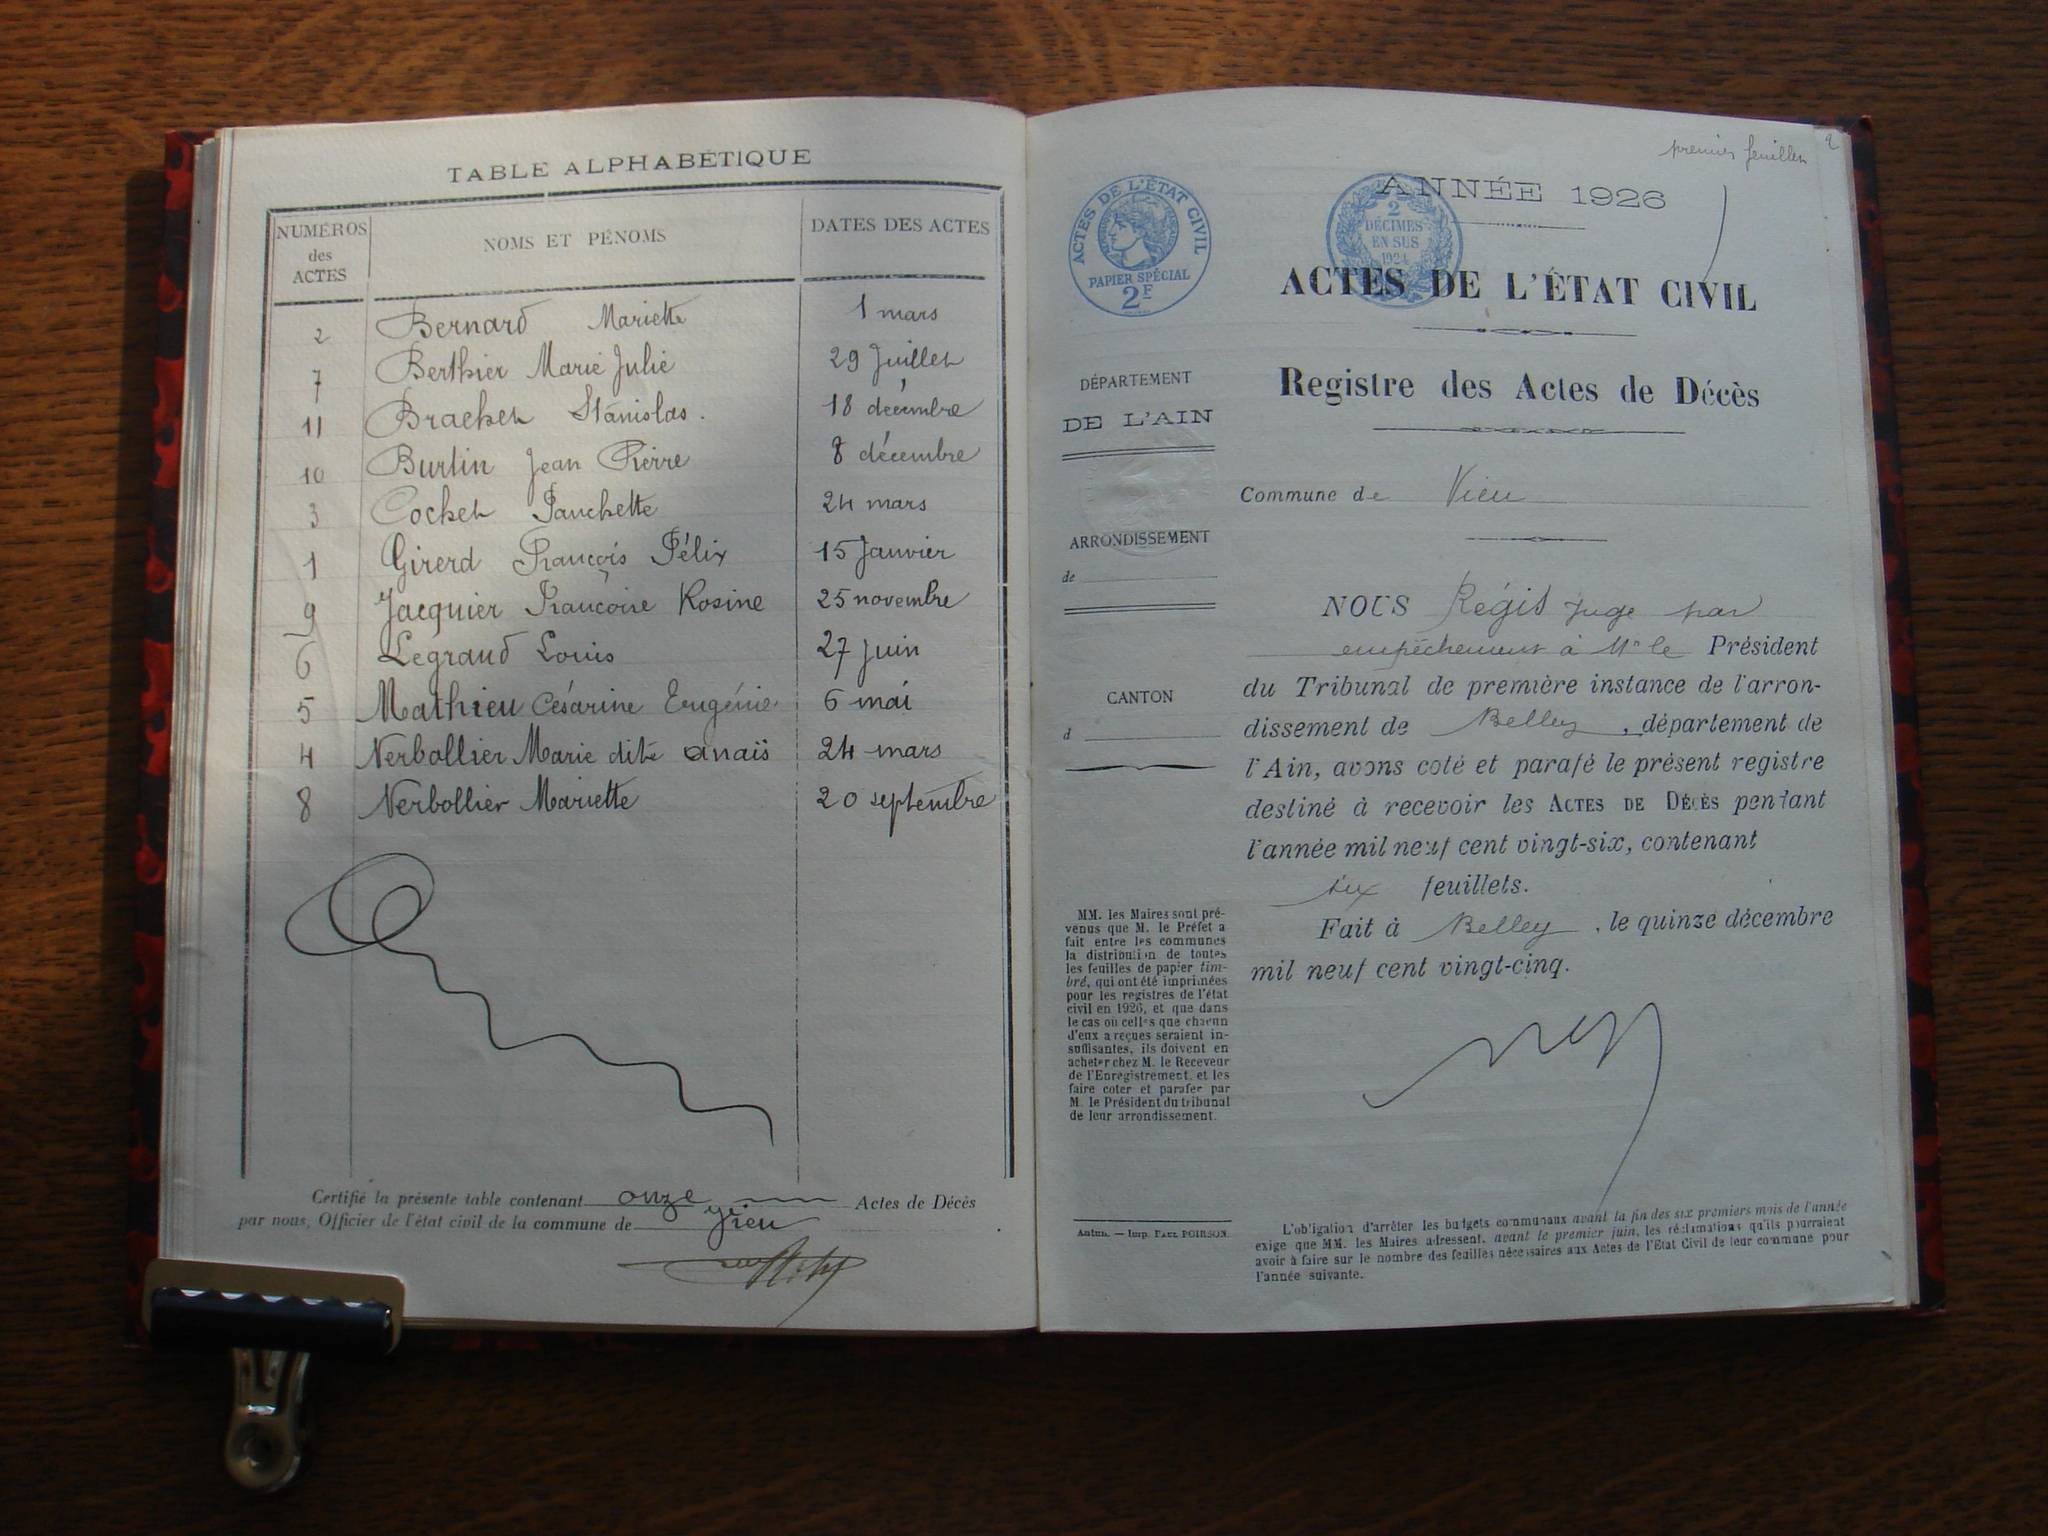 TABLE ALPHABÉTIQUE
NUMÉROS des ACTES NOMS ET PÉNOMS DATES DES ACTES
2 Bernard Mariette 1 mars
7 Berthier Marie Julie 29 Juillet
11 Brachet Stanislas. 18 décembre
10 Burtin Jean Pierre 8 décembre
3 Cochet Fanchette 24 mars
1 Girerd François Félix 15 Janvier
9 Jacquier Françoise Rosine 25 novembre
6 Legrand Louis 27 juin
5 Mathieu Césarine Eugénie 6 mai
4 Nerbollier Marie dite anaïs 24 mars
8 Nerbollier Mariette 20 septembre
Certifié la présente table contenant onze Actes de Décès
par nous, Officier de l'état civil de la commune de Vieu
premier feuillet
ACTES DE L'ÉTAT CIVIL
PAPIER SPÉCIAL
2F
2
DÉCIMES
EN SUS
1924
ANNÉE 1926
ACTES DE L'ÉTAT CIVIL
Registre des Actes de Décès
DÉPARTEMENT
DE L'AIN
ARRONDISSEMENT
de
CANTON
d
Commune de Vieu
NOUS Régis Juge par
empêchement à Mr le Président
du Tribunal de première instance de l'arron-
dissement de Belley, département de
l'Ain, avons coté et parafé le présent registre
destiné à recevoir les ACTES DE DÉCÈS pendant
l'année mil neuf cent vingt-six, contenant
six feuillets.
Fait à Belley, le quinze décembre
mil neuf cent vingt-cinq.
MM. les Maires sont pré-
venus que M. le Préfet a
fait entre les communes
la distribution de toutes
les feuilles de papier tim-
bré, qui ont été imprimées
pour les registres de l'état
civil en 1926, et que dans
le cas où celles que chacun
d'eux a reçues seraient in-
suffisantes, ils doivent en
acheter chez M. le Receveur
de l'Enregistrement, et les
faire coter et parafer par
M. le Président du tribunal
de leur arrondissement.
Autun. — Imp. PAUL POIRSON.
L'obligation d'arrêter les budgets communaux avant la fin des six premiers mois de l'année
exige que MM. les Maires adressent, avant le premier juin, les réclamations qu'ils pourraient
avoir à faire sur le nombre des feuilles nécessaires aux Actes de l'Etat Civil de leur commune pour
l'année suivante.